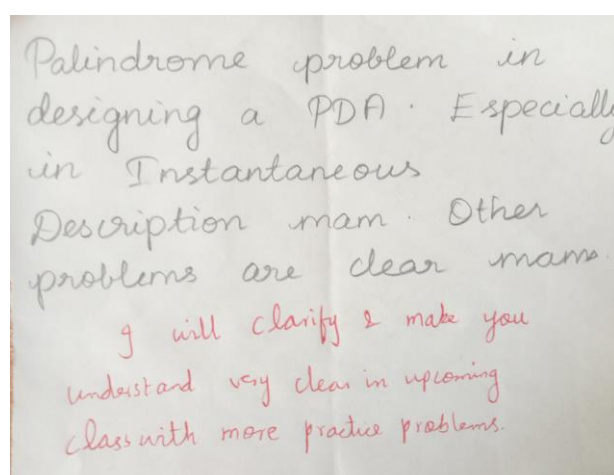 Palindrome problem in
designing a PDA. Especially
in Instantaneous
Description mam. Other
problems are clear mam.
I will clarify & make you
understand very clear in upcoming
class with more practice problems.